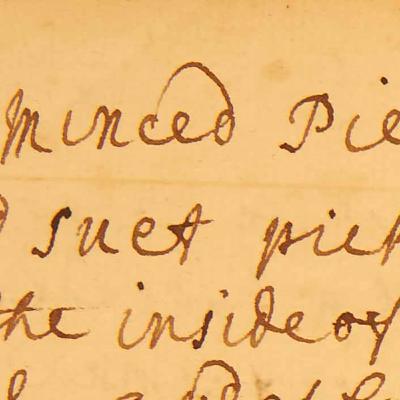 minced Pie
suet pick
the inside of